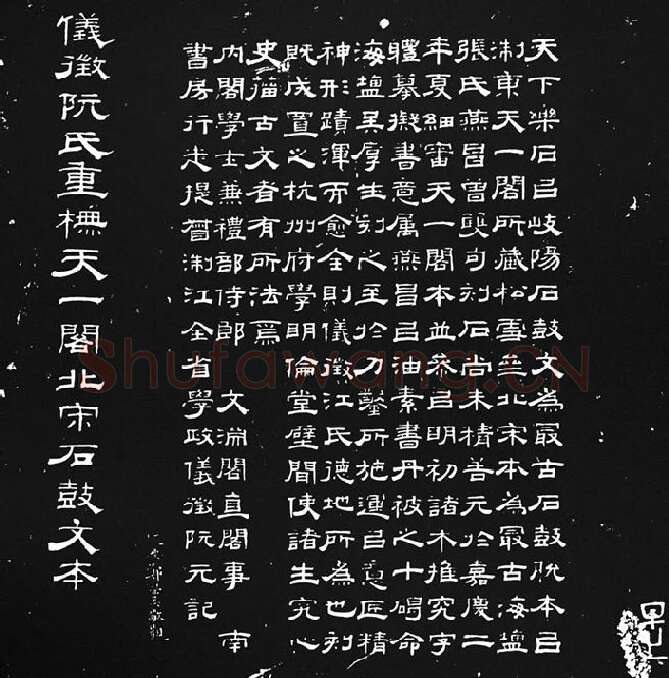 天下樂石㠯岐陽石鼓文為最古石鼓脫本㠯
淛東天一閣所藏松雪齋北宋本為最古海鹽
張氏燕昌曾雙勾刻石尚未精善元於嘉慶二
年夏細審天一閣本並參㠯明初諸本推究字
體摹擬書意屬燕昌㠯油素書丹被之十碣命
海鹽吳厚生刻之至於刀鑿所施運㠯意匠精
神形蹟渾而愈全則儀徵江氏德地所為也刻
既成置之杭州府學明倫堂壁間使諸生究心
史籀古文者有所法焉
內閣學士兼禮部侍郎 文淵閣直閣事 南
書房行走提督淛江全省學政儀徵阮元記
儀徵阮氏重橅天一閣北宋石鼓文本
Shufawang.CN